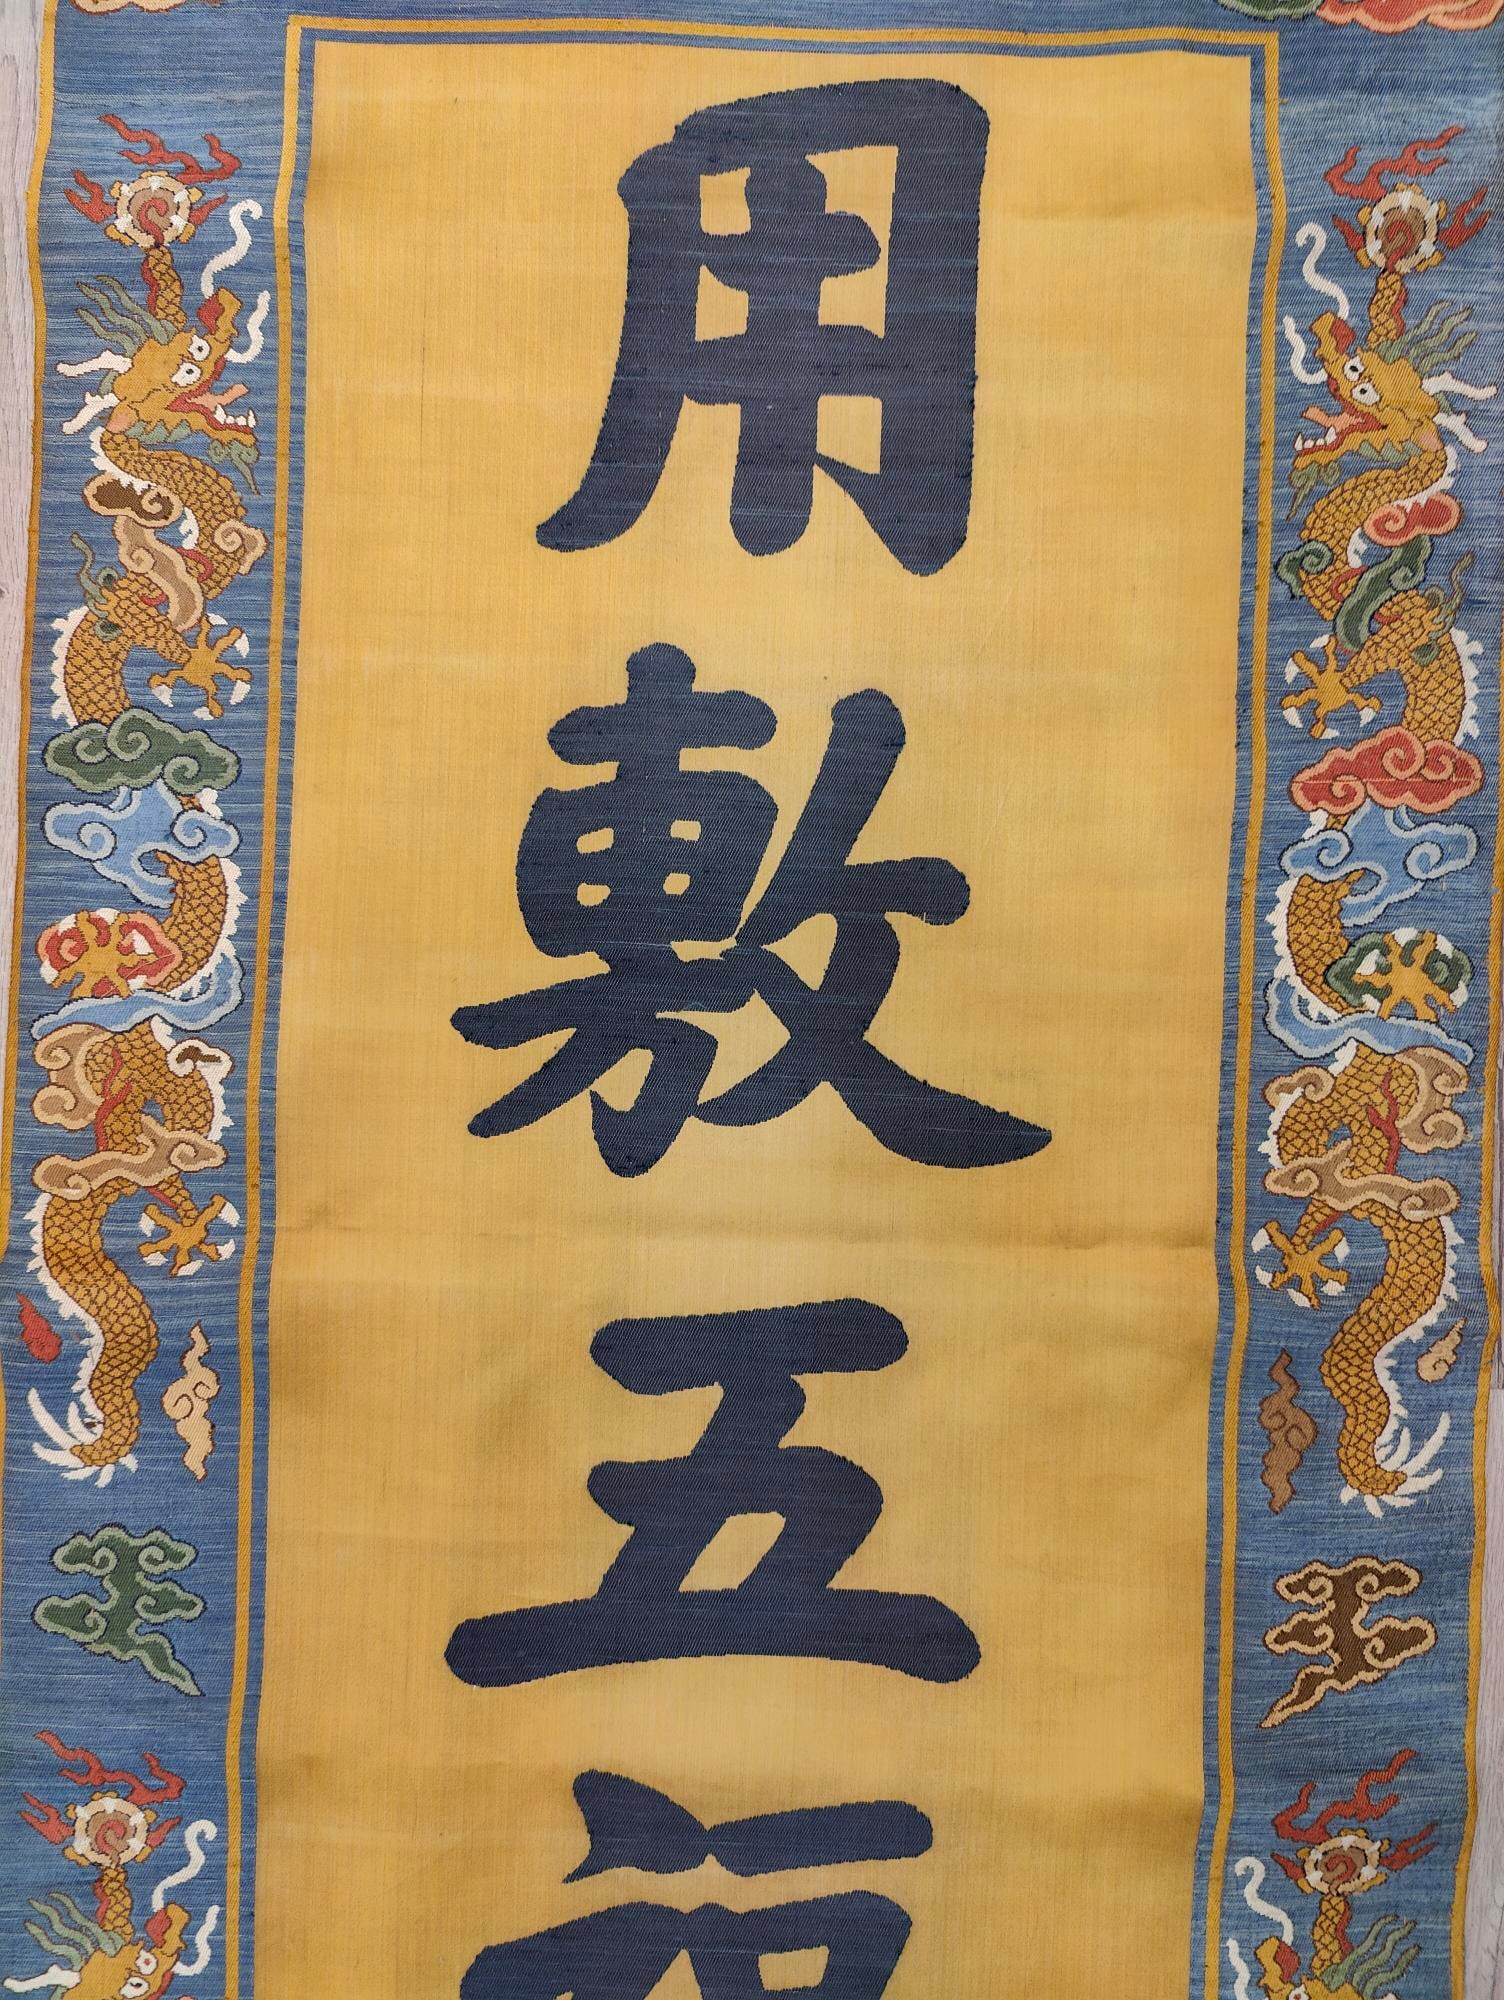 用敷五